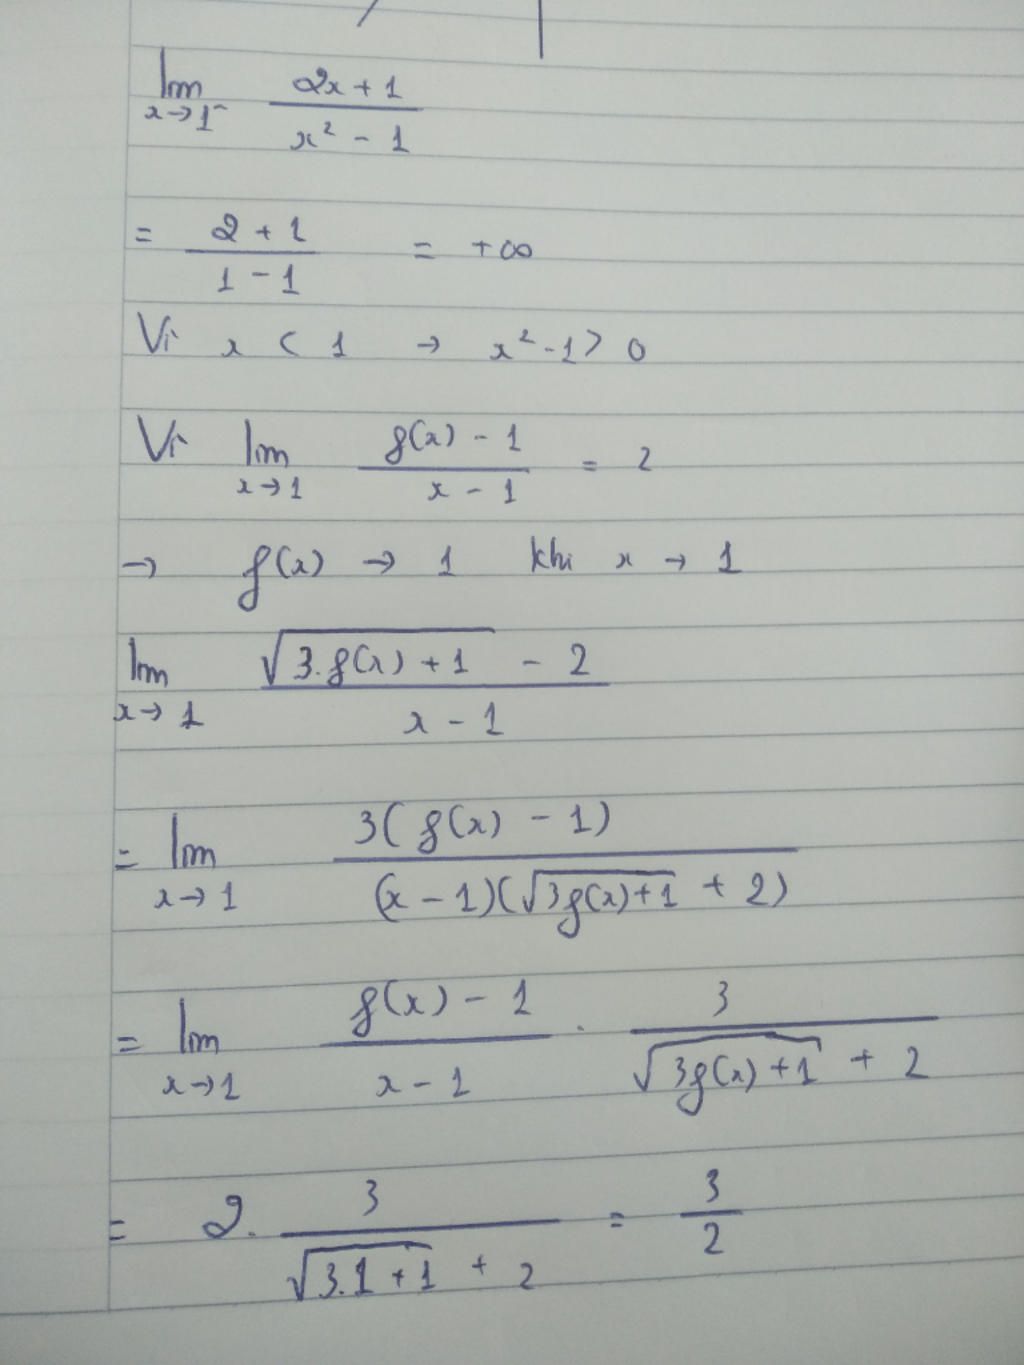 lim x→1⁻ (2x + 1)/(x² - 1)
= (2 + 1)/(1 - 1) = +∞
Vì x < 1 → x² - 1 > 0
Vì lim x→1 (f(x) - 1)/(x - 1) = 2
→ f(x) → 1 khi x → 1
lim x→1 (√(3.f(x) + 1) - 2)/(x - 1)
= lim x→1 3(f(x) - 1)/((x - 1)(√(3f(x) + 1) + 2))
= lim x→1 (f(x) - 1)/(x - 1) . 3/(√(3f(x) + 1) + 2)
= 2. 3/(√(3.1 + 1) + 2) = 3/2